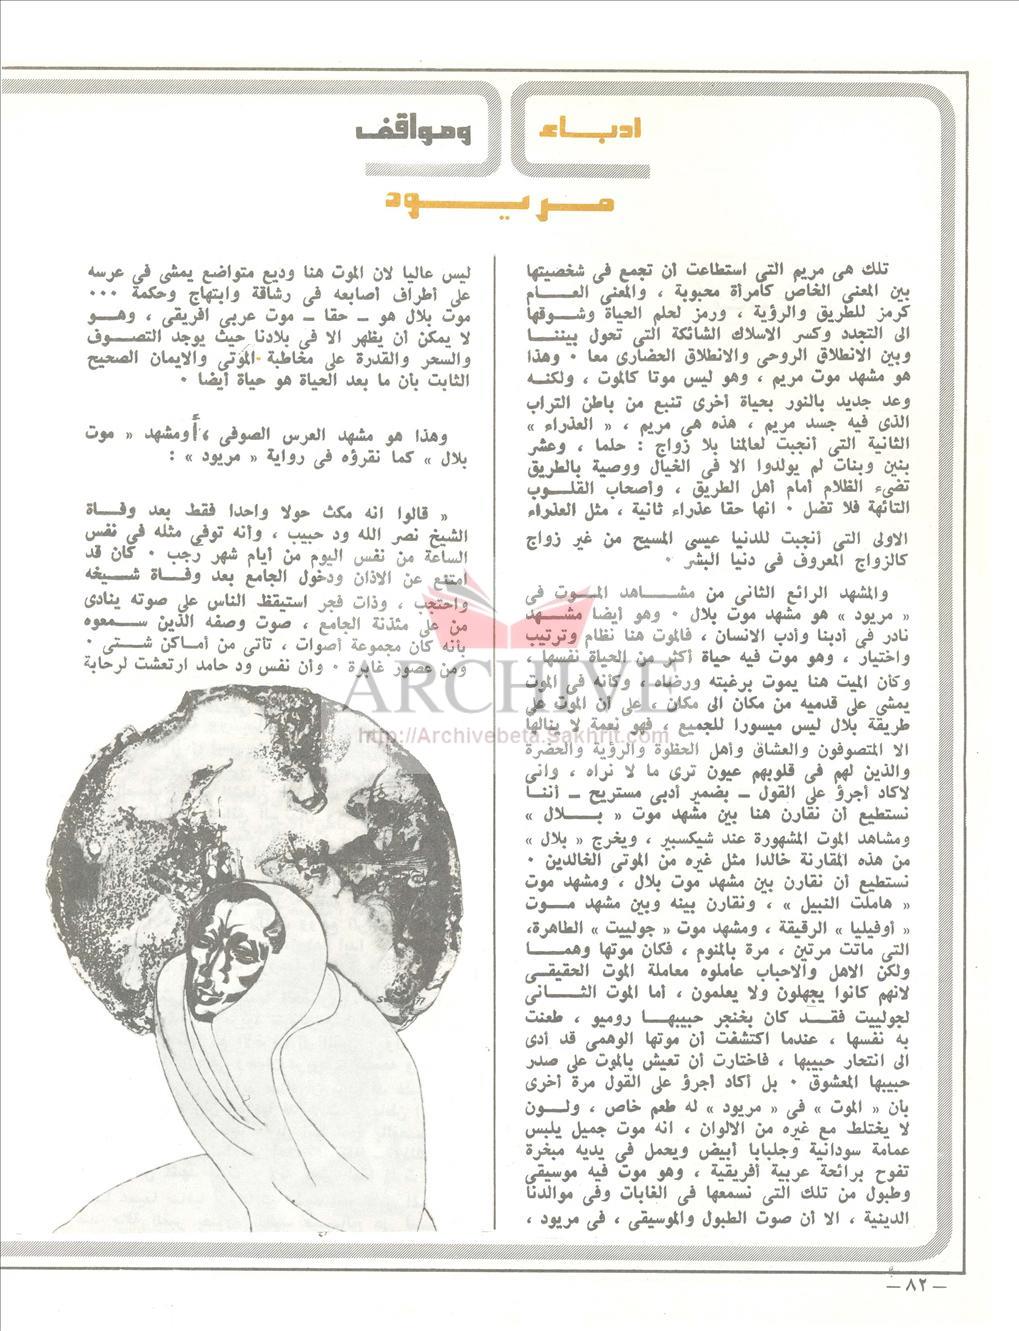 ادباء ومواقف
مريود
تلك هى مريم التى استطاعت أن تجمع فى شخصيتها
بين المعنى الخاص كأمرأة محبوبة ، والمعنى العام
كرمز للطريق والرؤية ، ورمز لحلم الحياة وشوقها
الى التجدد وكسر الاسلاك الشائكة التى تحول بيننا
وبين الانطلاق الروحى والانطلاق الحضارى معا ٠ وهذا
هو مشهد موت مريم ، وهو ليس موتا كالموت ، ولكنه
وعد جديد بالنور بحياة أخرى تنبع من باطن التراب
الذى فيه جسد مريم ، هذه هى مريم ، « العذراء »
الثانية التى أنجبت لعالمنا بلا زواج : حلما ، وعشر
بنين وبنات لم يولدوا الا فى الخيال ووصية بالطريق
تضىء الظلام أمام أهل الطريق ، وأصحاب القلوب
التائهة فلا تضل ٠ انها حقا عذراء ثانية ، مثل العذراء
الاولى التى أنجبت للدنيا عيسى المسيح من غير زواج
كالزواج المعروف فى دنيا البشر ٠
والمشهد الرائع الثانى من مشاهد الموت فى
« مريود » هو مشهد موت بلال ٠ وهو أيضا مشهد
نادر فى أدبنا وأدب الانسان ، فالموت هنا نظام وترتيب
واختيار ، وهو موت فيه حياة أكثر من الحياة نفسها ،
وكأن الميت هنا يموت برغبته ورضاه ، وكأنه فى الموت
يمشى على قدميه من مكان الى مكان ٠ على أن الموت على
طريقة بلال ليس ميسورا للجميع ، فهو نعمة لا ينالها
الا المتصوفون والعشاق وأهل الحظوة والرؤية والحضرة
والذين لهم فى قلوبهم عيون ترى ما لا نراه ، وانى
لاكاد أجرؤ على القول ـ بضمير أدبى مستريح ـ أننا
نستطيع أن نقارن هنا بين مشهد موت « بلال »
ومشاهد الموت المشهورة عند شيكسبير ، ويخرج « بلال »
من هذه المقارنة خالدا مثل غيره من الموتى الخالدين ٠
نستطيع أن نقارن بين مشهد موت بلال ، ومشهد موت
« هاملت النبيل » ، ونقارن بينه وبين مشهد موت
« أوفيليا » الرقيقة ، ومشهد موت « جولييت » الطاهرة،
التى ماتت مرتين ، مرة بالمنوم ، فكان موتها وهما
ولكن الاهل والاحباب عاملوه معاملة الموت الحقيقى
لانهم كانوا يجهلون ولا يعلمون ، أما الموت الثانى
لجولييت فقد كان بخنجر حبيبها روميو ، طعنت
به نفسها ، عندما اكتشفت أن موتها الوهمى قد أدى
الى انتحار حبيبها ، فاختارت أن تعيش بالموت على صدر
حبيبها المعشوق ٠ بل أكاد أجرؤ على القول مرة أخرى
بأن « الموت » فى « مريود » له طعم خاص ، ولون
لا يختلط مع غيره من الالوان ، انه موت جميل يلبس
عمامة سودانية وجلبابا أبيض ويحمل فى يديه مبخرة
تفوح برائحة عربية أفريقية ، وهو موت فيه موسيقى
وطبول من تلك التى نسمعها فى الغابات وفى موالدنا
الدينية ، الا أن صوت الطبول والموسيقى ، فى مريود ،
ليس عاليا لان الموت هنا وديع متواضع يمشى فى عرسه
على أطراف أصابعه فى رشاقة وابتهاج وحكمة ٠٠٠
موت بلال هو ـ حقا ـ موت عربى افريقى ، وهو
لا يمكن أن يظهر الا فى بلادنا حيث يوجد التصوف
والسحر والقدرة على مخاطبة الموتى والايمان الصحيح
الثابت بأن ما بعد الحياة هو حياة أيضا ٠
وهذا هو مشهد العرس الصوفى ، أومشهد « موت
بلال » كما نقرؤه فى رواية « مريود » :
« قالوا انه مكث حولا واحدا فقط بعد وفاة
الشيخ نصر الله ود حبيب ، وأنه توفي مثله في نفس
الساعة من نفس اليوم من أيام شهر رجب ٠ كان قد
امتنع عن الاذان ودخول الجامع بعد وفاة شيخه
واحتجب ، وذات فجر استيقظ الناس على صوته ينادى
من على مئذنة الجامع ، صوت وصفه الذين سمعوه
بأنه كان مجموعة أصوات ، تأتى من أماكن شتى ٠
ومن عصور غابرة ٠ وأن نفس ود حامد ارتعشت لرحابة
ARCHIVE
http://Archivebeta.Sakhrit.com
ـ ٨٢ ـ